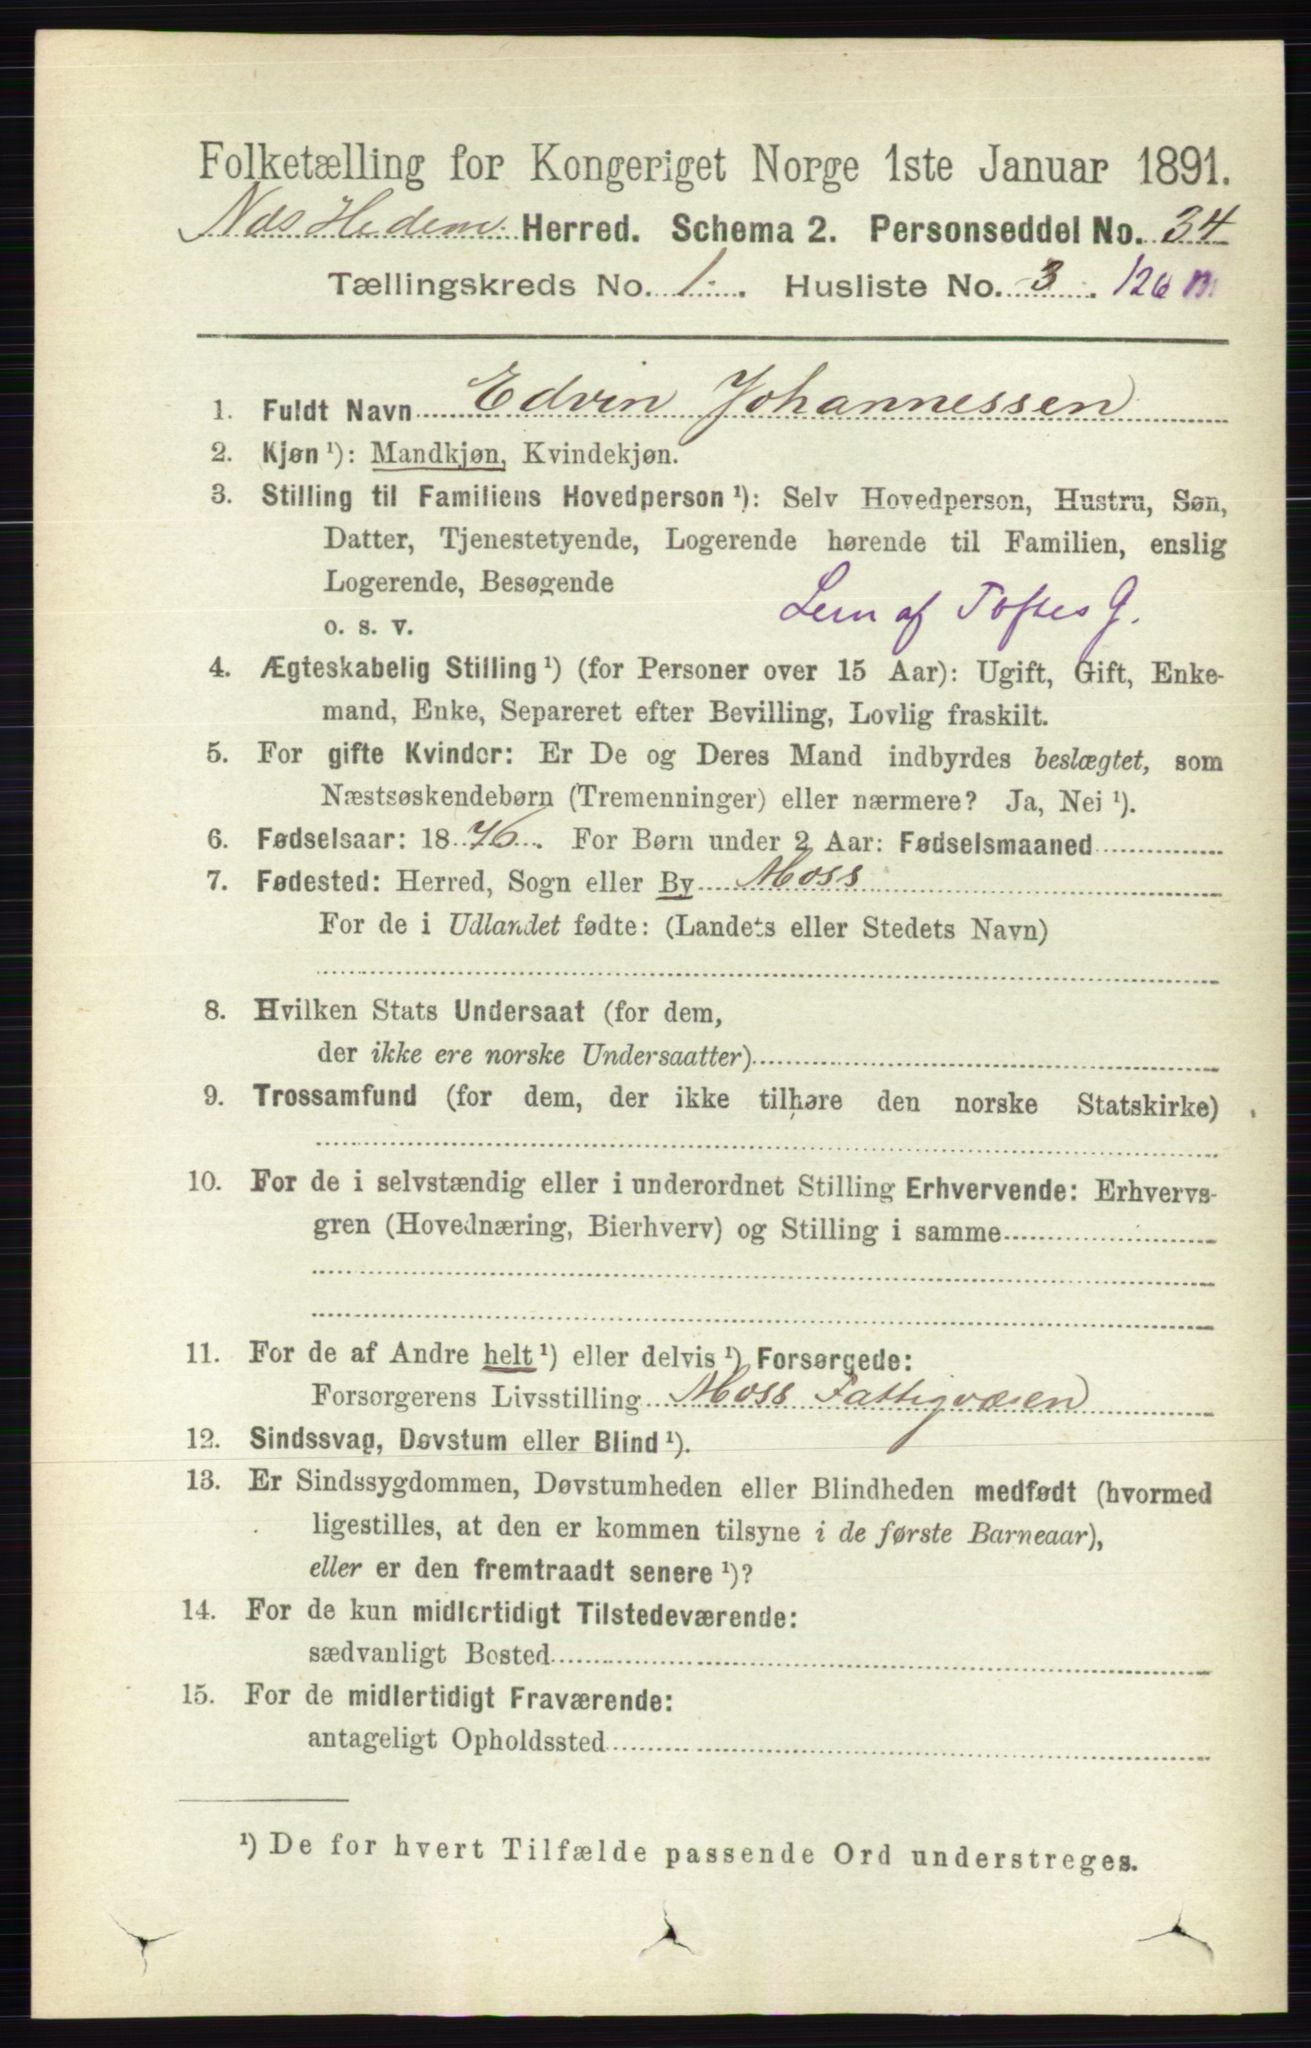 Folketælling for Kongeriget Norge 1ste Januar 1891.
Næs Hedem. Herred. Schema 2. Personseddel No. 34
Tællingskreds No. 1. Husliste No. 3. 126 m
1. Fuldt Navn Edvin Johannessen
2. Kjøn ¹): Mandkjøn, Kvindekjøn.
3. Stilling til Familiens Hovedperson ¹): Selv Hovedperson, Hustru, Søn,
Datter, Tjenestetyende, Logerende hørende til Familien, enslig
Logerende, Besøgende
o. s. v. Lem af Toftes G.
4. Ægteskabelig Stilling ¹) (for Personer over 15 Aar): Ugift, Gift, Enke-
mand, Enke, Separeret efter Bevilling, Lovlig fraskilt.
5. For gifte Kvinder: Er De og Deres Mand indbyrdes beslægtet, som
Næstsøskendebørn (Tremenninger) eller nærmere? Ja, Nei ¹).
6. Fødselsaar: 1876. For Børn under 2 Aar: Fødselsmaaned
7. Fødested: Herred, Sogn eller By Moss
For de i Udlandet fødte: (Landets eller Stedets Navn)
8. Hvilken Stats Undersaat (for dem,
der ikke ere norske Undersaatter)
9. Trossamfund (for dem, der ikke tilhøre den norske Statskirke)
10. For de i selvstændig eller i underordnet Stilling Erhvervende: Erhvervs-
gren (Hovednæring, Bierhverv) og Stilling i samme
11. For de af Andre helt ¹) eller delvis ¹) Forsørgede:
Forsørgerens Livsstilling Moss Fattigvæsen
12. Sindssvag, Døvstum eller Blind ¹).
13. Er Sindssygdommen, Døvstumheden eller Blindheden medfødt (hvormed
ligestilles, at den er kommen tilsyne i de første Barneaar),
eller er den fremtraadt senere ¹)?
14. For de kun midlertidigt Tilstedeværende:
sædvanligt Bosted
15. For de midlertidigt Fraværende:
antageligt Opholdssted
¹) De for hvert Tilfælde passende Ord understreges.